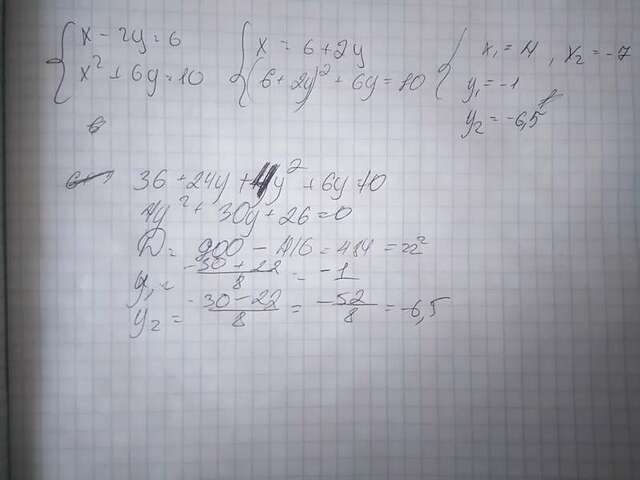 { x - 2y = 6 { x = 6 + 2y { x₁ = 4 , x₂ = -7
x² + 6y = 10 (6 + 2y)² + 6y = 10 y₁ = -1
y₂ = -6,5
6
36 + 24y + 4y² + 6y = 10
4y² + 30y + 26 = 0
D = 900 - 416 = 484 = 22²
y₁ = (-30 + 22)/8 = -1
y₂ = (-30 - 22)/8 = -52/8 = -6,5